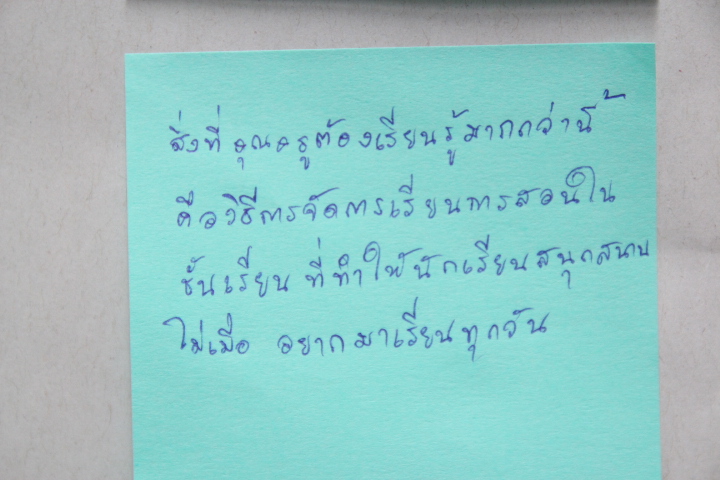 สิ่งที่คุณครูต้องเรียนรู้มากกว่านี้
คือวิธีการจัดการเรียนการสอนใน
ชั้นเรียน ที่ทำให้นักเรียนสนุกสนาน
ไม่เบื่อ อยากมาเรียนทุกวัน